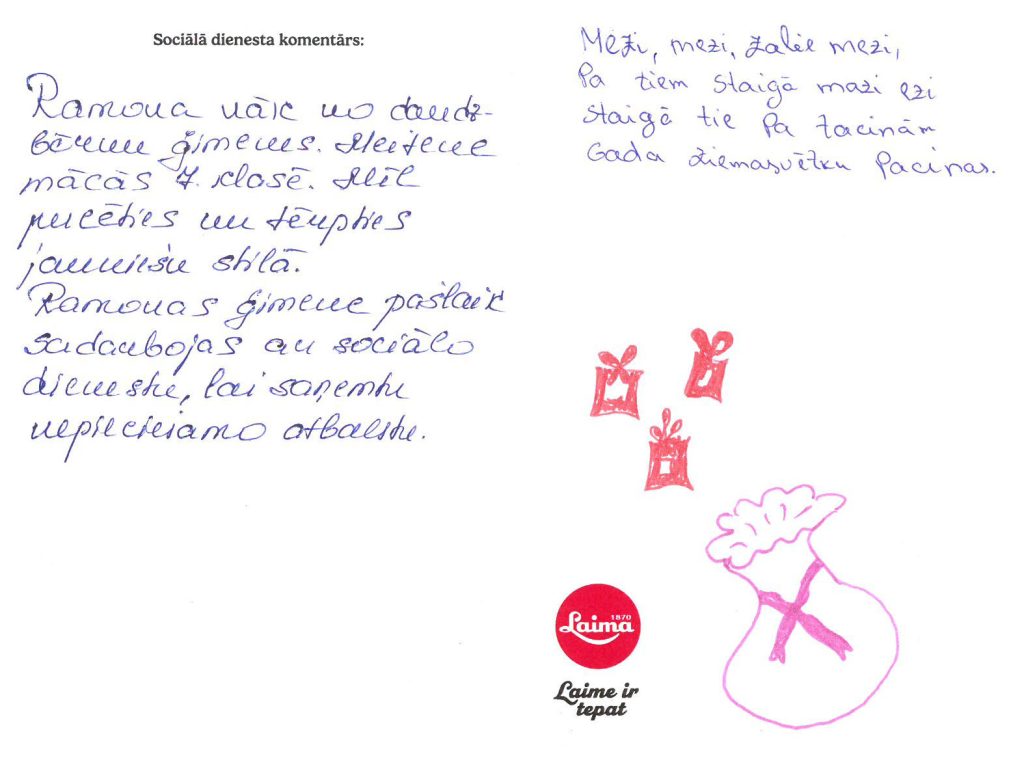 Sociālā dienesta komentārs:
Ramona nāk no daudz-
bērnu ģimenes. Meitene
mācās 7. klasē. Mīl
pucēties un tērpties
jauniešu stilā.
Ramonas ģimene pašlaik
sadarbojas ar sociālo
dienestu, lai saņemtu
nepieciešamo atbalstu.
Meži, meži, zaļie meži,
Pa tiem staigā mazi eži
staigā tie pa taciņām
Gada Ziemasvētku Paciņas.
Laima
1870
Laime ir
tepat